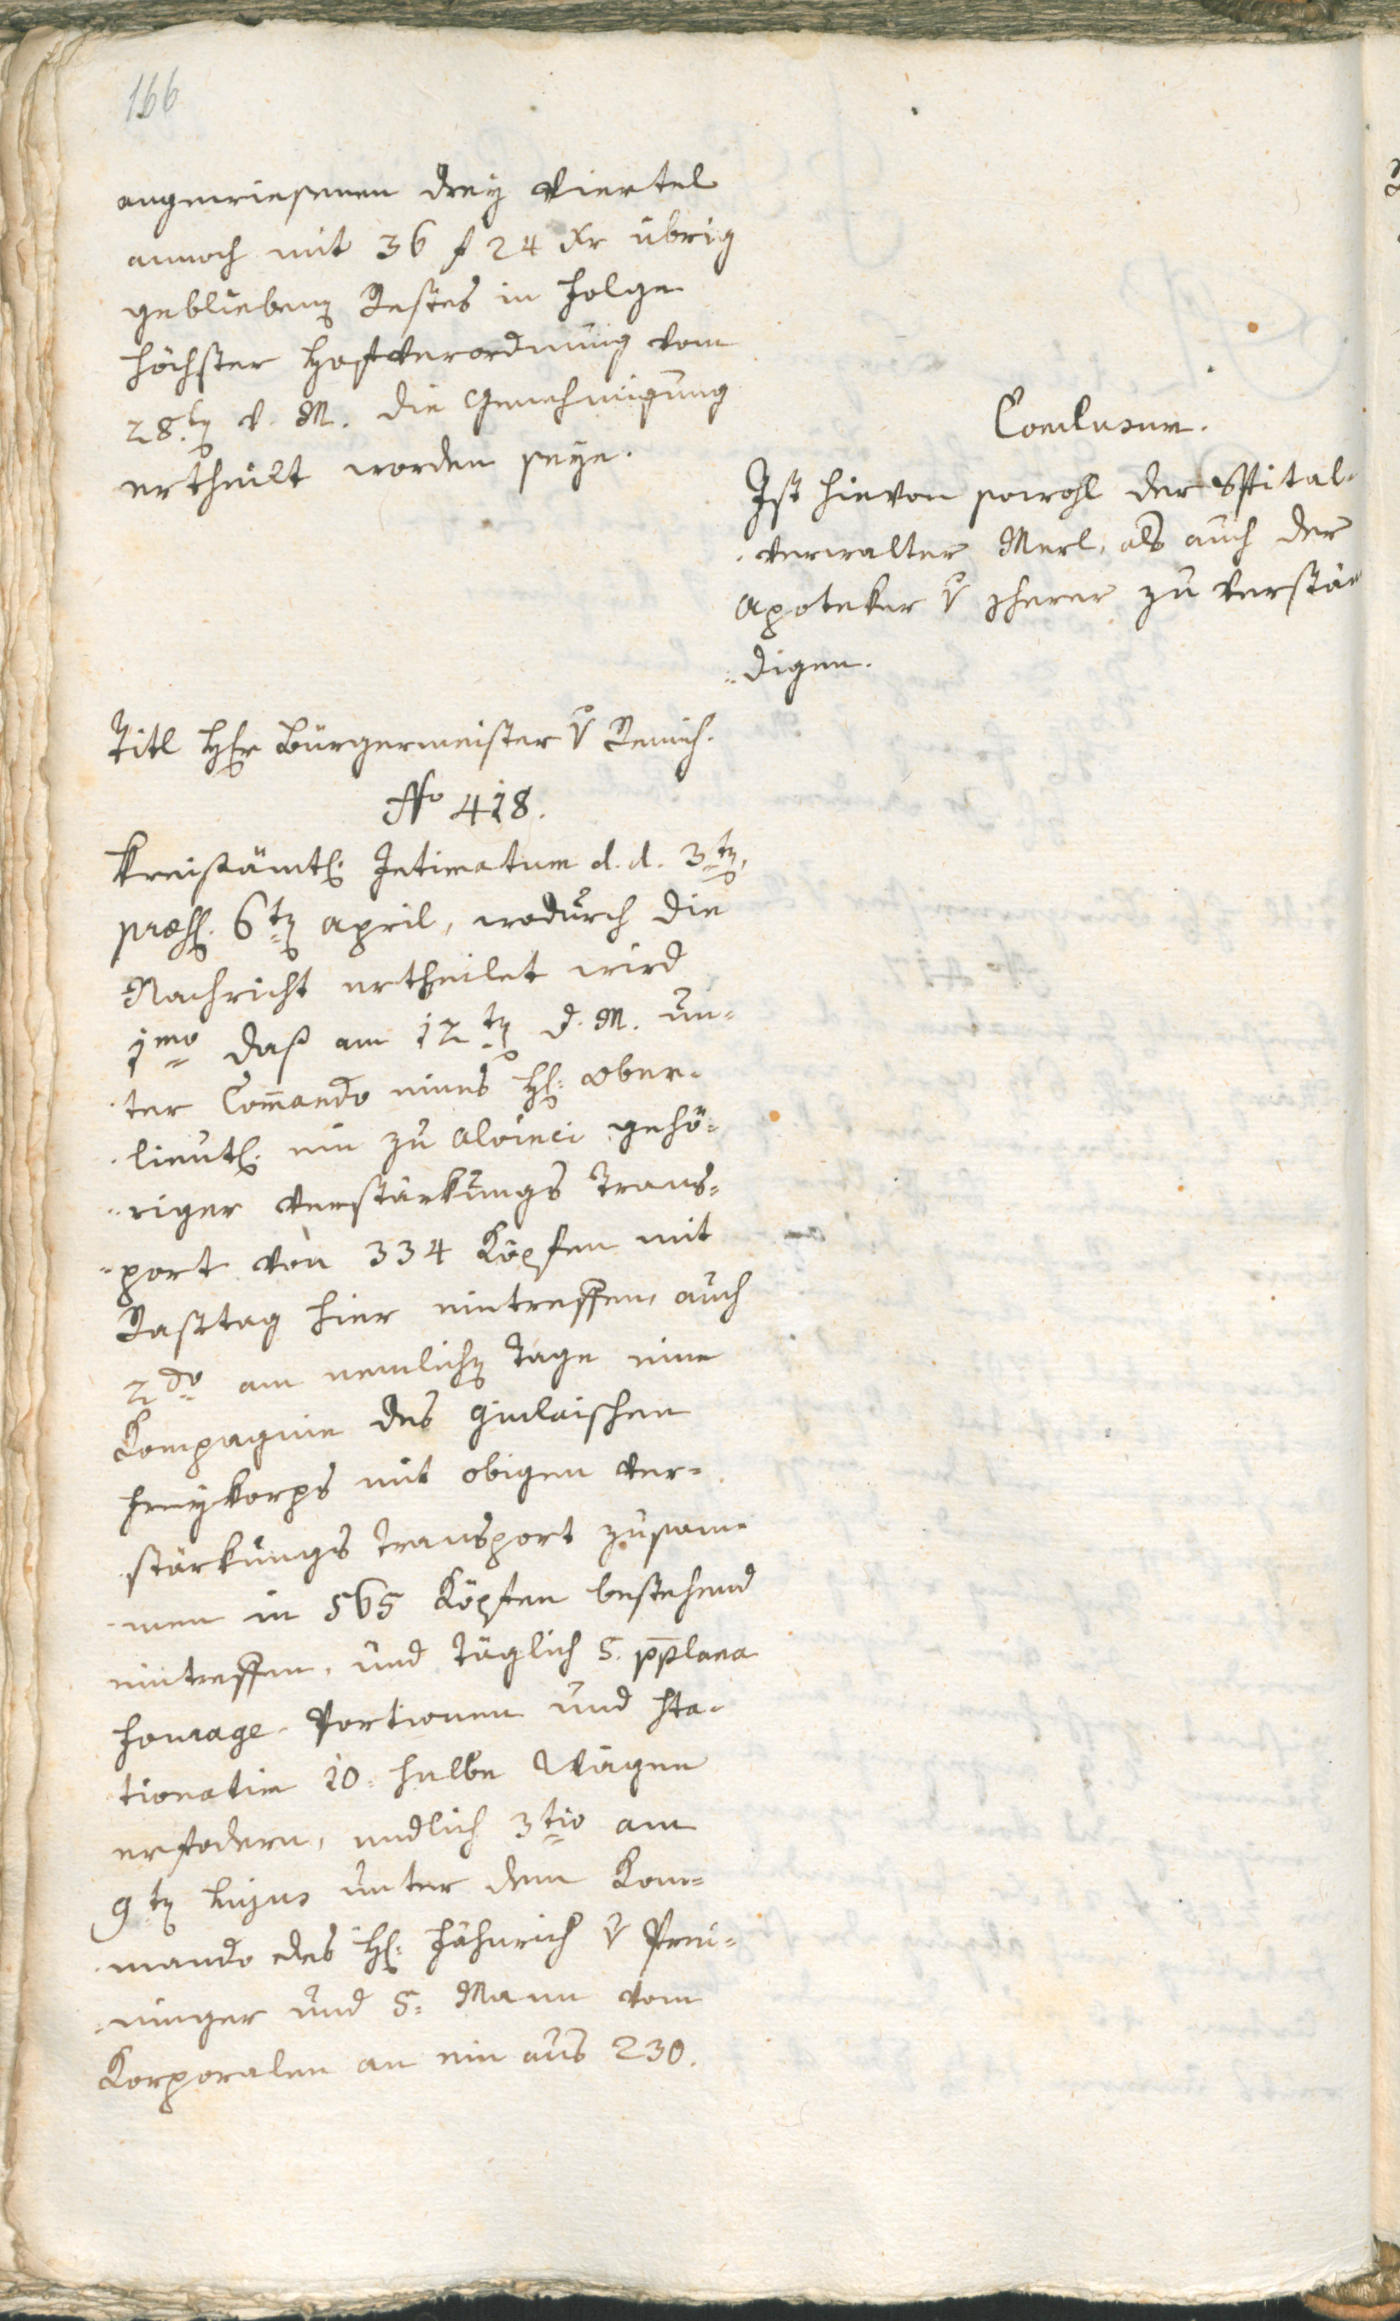 166
angewiesenen drey Viertel
annoch mit 36 f 24 Xr übrig
gebliebenen Restes in Folge
höchster Hofverordnung vom
28.ten v. M. die Genehmigung
ertheilt worden seye.
Conclusum.
Ist hievon sowohl der Spital-
verwalter Merl, als auch der
Apoteker v Scherer zu verstän
digen.
Titl Hr Bürgermeister v Remich.
No 418.
Kreisämtl. Intimatum d. d. 3ten,
præs. 6ten April, wodurch die
Nachricht ertheilet wird
1mo daß am 12ten d. M. un-
ter Commando eines H: Ober-
lieut. ein zu Alvinci gehö-
riger Verstärkungs Trans-
port von 334 Köpfen mit
Rasttag hier eintreffen, auch
2do am nemlichen Tage eine
Kompagnie des Giulaischen
Freykorps mit obigen Ver-
stärkungs Transport zusam-
men in 565 Köpfen bestehend
eintreffen, und täglich 5. pplana
Fourage-Portionen und Sta-
tionatim 10. halbe Wägen
erfodern, endlich 3tio am
9ten hujus unter dem Kom-
mando des H: Fähnrich v Prei-
ninger und 5. Mann vom
Korporalen an ein aus 230.